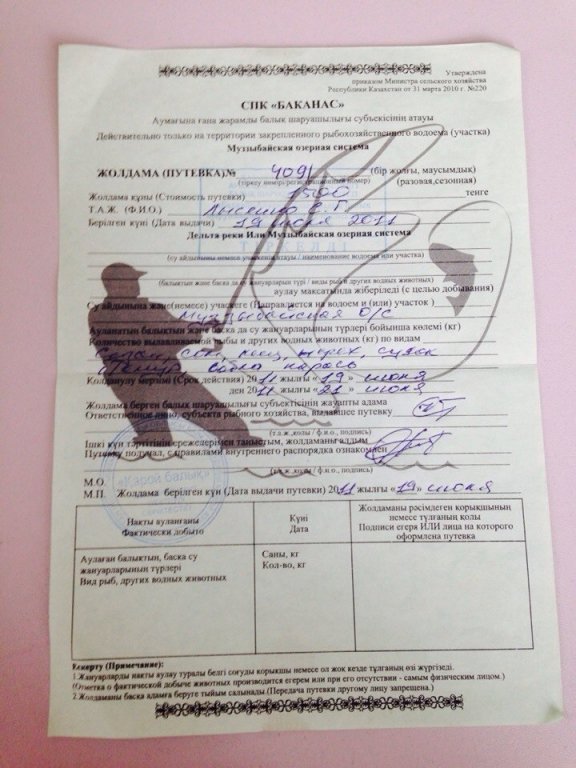 Утверждена
приказом Министра сельского хозяйства
Республики Казахстан от 31 марта 2010 г. №220
СПК «БАКАНАС»
Аумағына ғана жарамды балық шаруашылығы субъекісінің атауы
Действительно только на территории закрепленного рыбохозяйственного водоема (участка)
Мутыбайская озерная система
ЖОЛДАМА (ПУТЕВКА)№ 409 (бір жолғы, маусымдық)
(тіркеу нөмері/регистрационный номер) (разовая,сезонная)
Жолдама құны (Стоимость путевки) 1500 тенге
Т.А.Ж. (Ф.И.О.)
Берілген күні (Дата выдачи) 19 июня 2011
Дельта реки Или Мутыбайская озерная система
(су айдыны немесе учаскенің атауы / наименование водоема или участка)
(балықтың және басқа да су жануарларының түрі / виды рыб и других водных животных)
аулау мақсатында жіберіледі (с целью добывания)
Су айдынына және(немесе) учаскеге (Направляется на водоем и (или) участок )
О/С
Ауланатын балықтың және басқа да су жануарларының түрлері бойынша көлемі (кг)
Количество вылавливаемой рыбы и других водных животных (кг) по видам
Сазан, сом, жерех, судак
вобла карась
Қолданылу мерзімі (Срок действия) 2011 жылғы «19» июня
ден 2011 жылғы «21» июня
Жолдама берген балық шаруашылығы субъектісінің жауапты адамы
Ответственное лицо субъекта рыбного хозяйства, выдавшее путевку
(т.а.ж.,қолы / ф.и.о., подпись)
Ішкі күн тәртібінің ережелерімен таныстым, жолдаманы алдым
Путевку получил, с правилами внутреннего распорядка ознакомлен
(т.а.ж.,қолы / ф.и.о., подпись)
М.О.
М.П. Жолдама берілген күн (Дата выдачи путевки) 2011 жылғы «19» июня
«Кәрой балық»
Нақты ауланғаны
Фактически добыто
Күні
Дата
Жолданы рәсімдеген қорықшының
немесе тұлғаның қолы
Подписи егеря ИЛИ лица на которого
оформлена путевка
Ауланған балықтың, басқа су
жануарларының түрлері
Вид рыб, других водных животных
Саны, кг
Кол-во, кг
Ескерту (Примечание):
1.Жануарларды нақты аулау туралы белгі соғуды қорықшы немесе ол жоқ кезде тұлғаның өзі жүргізеді.
(Отметка о фактической добыче животных производится егерем или при его отсутствии - самым физическим лицом.)
2.Жолдаманы басқа адамға беруге тыйым салынады.(Передача путевки другому лицу запрещена.)